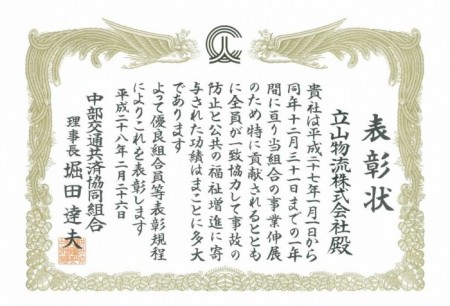 表彰状
立山物流株式会社殿
貴社は平成二十七年一月一日から
同年十二月三十一日までの一年
間に亘り当組合の事業伸展
のため特に貢献されるととも
に全員が一致協力して事故の
防止と公共の福祉増進に寄
与された功績はまことに多大
であります
よって優良組合員等表彰規程
によりこれを表彰します
平成二十八年二月二十六日
中部交通共済協同組合
理事長 堀田達夫